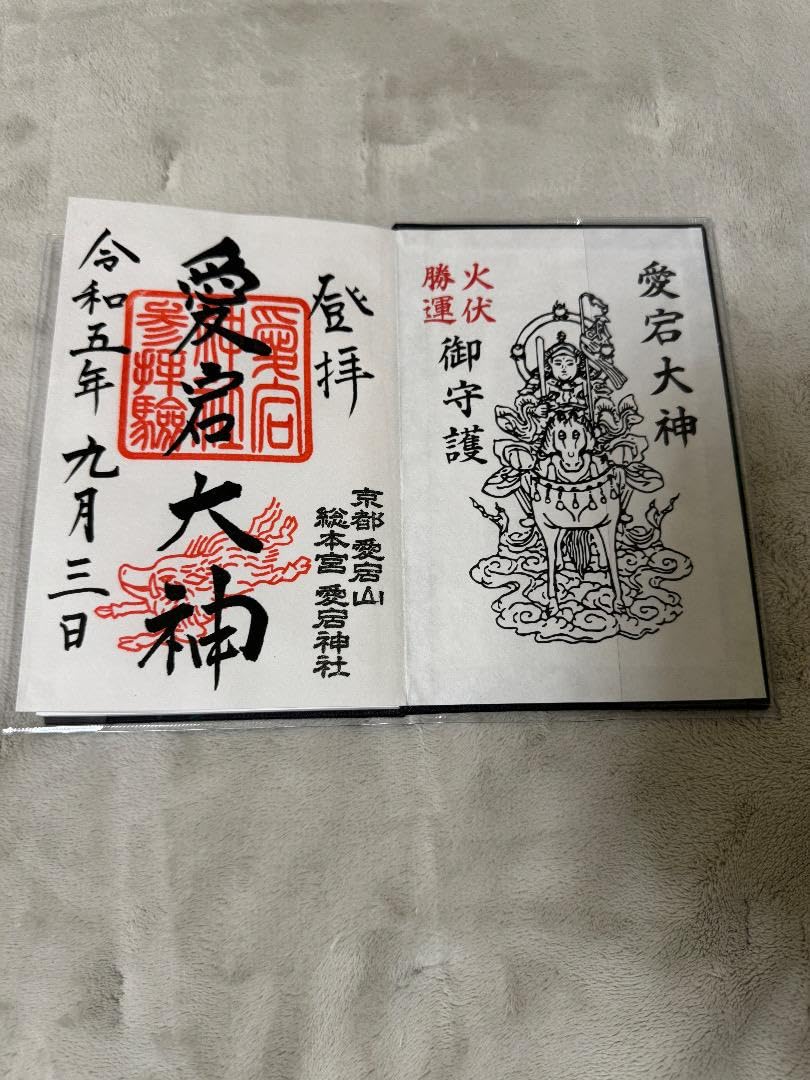 愛宕大神
火伏
勝運
御守護
登拝
京都 愛宕山
総本宮 愛宕神社
愛宕
神社
参拝験
愛宕大神
令和五年 九月三日